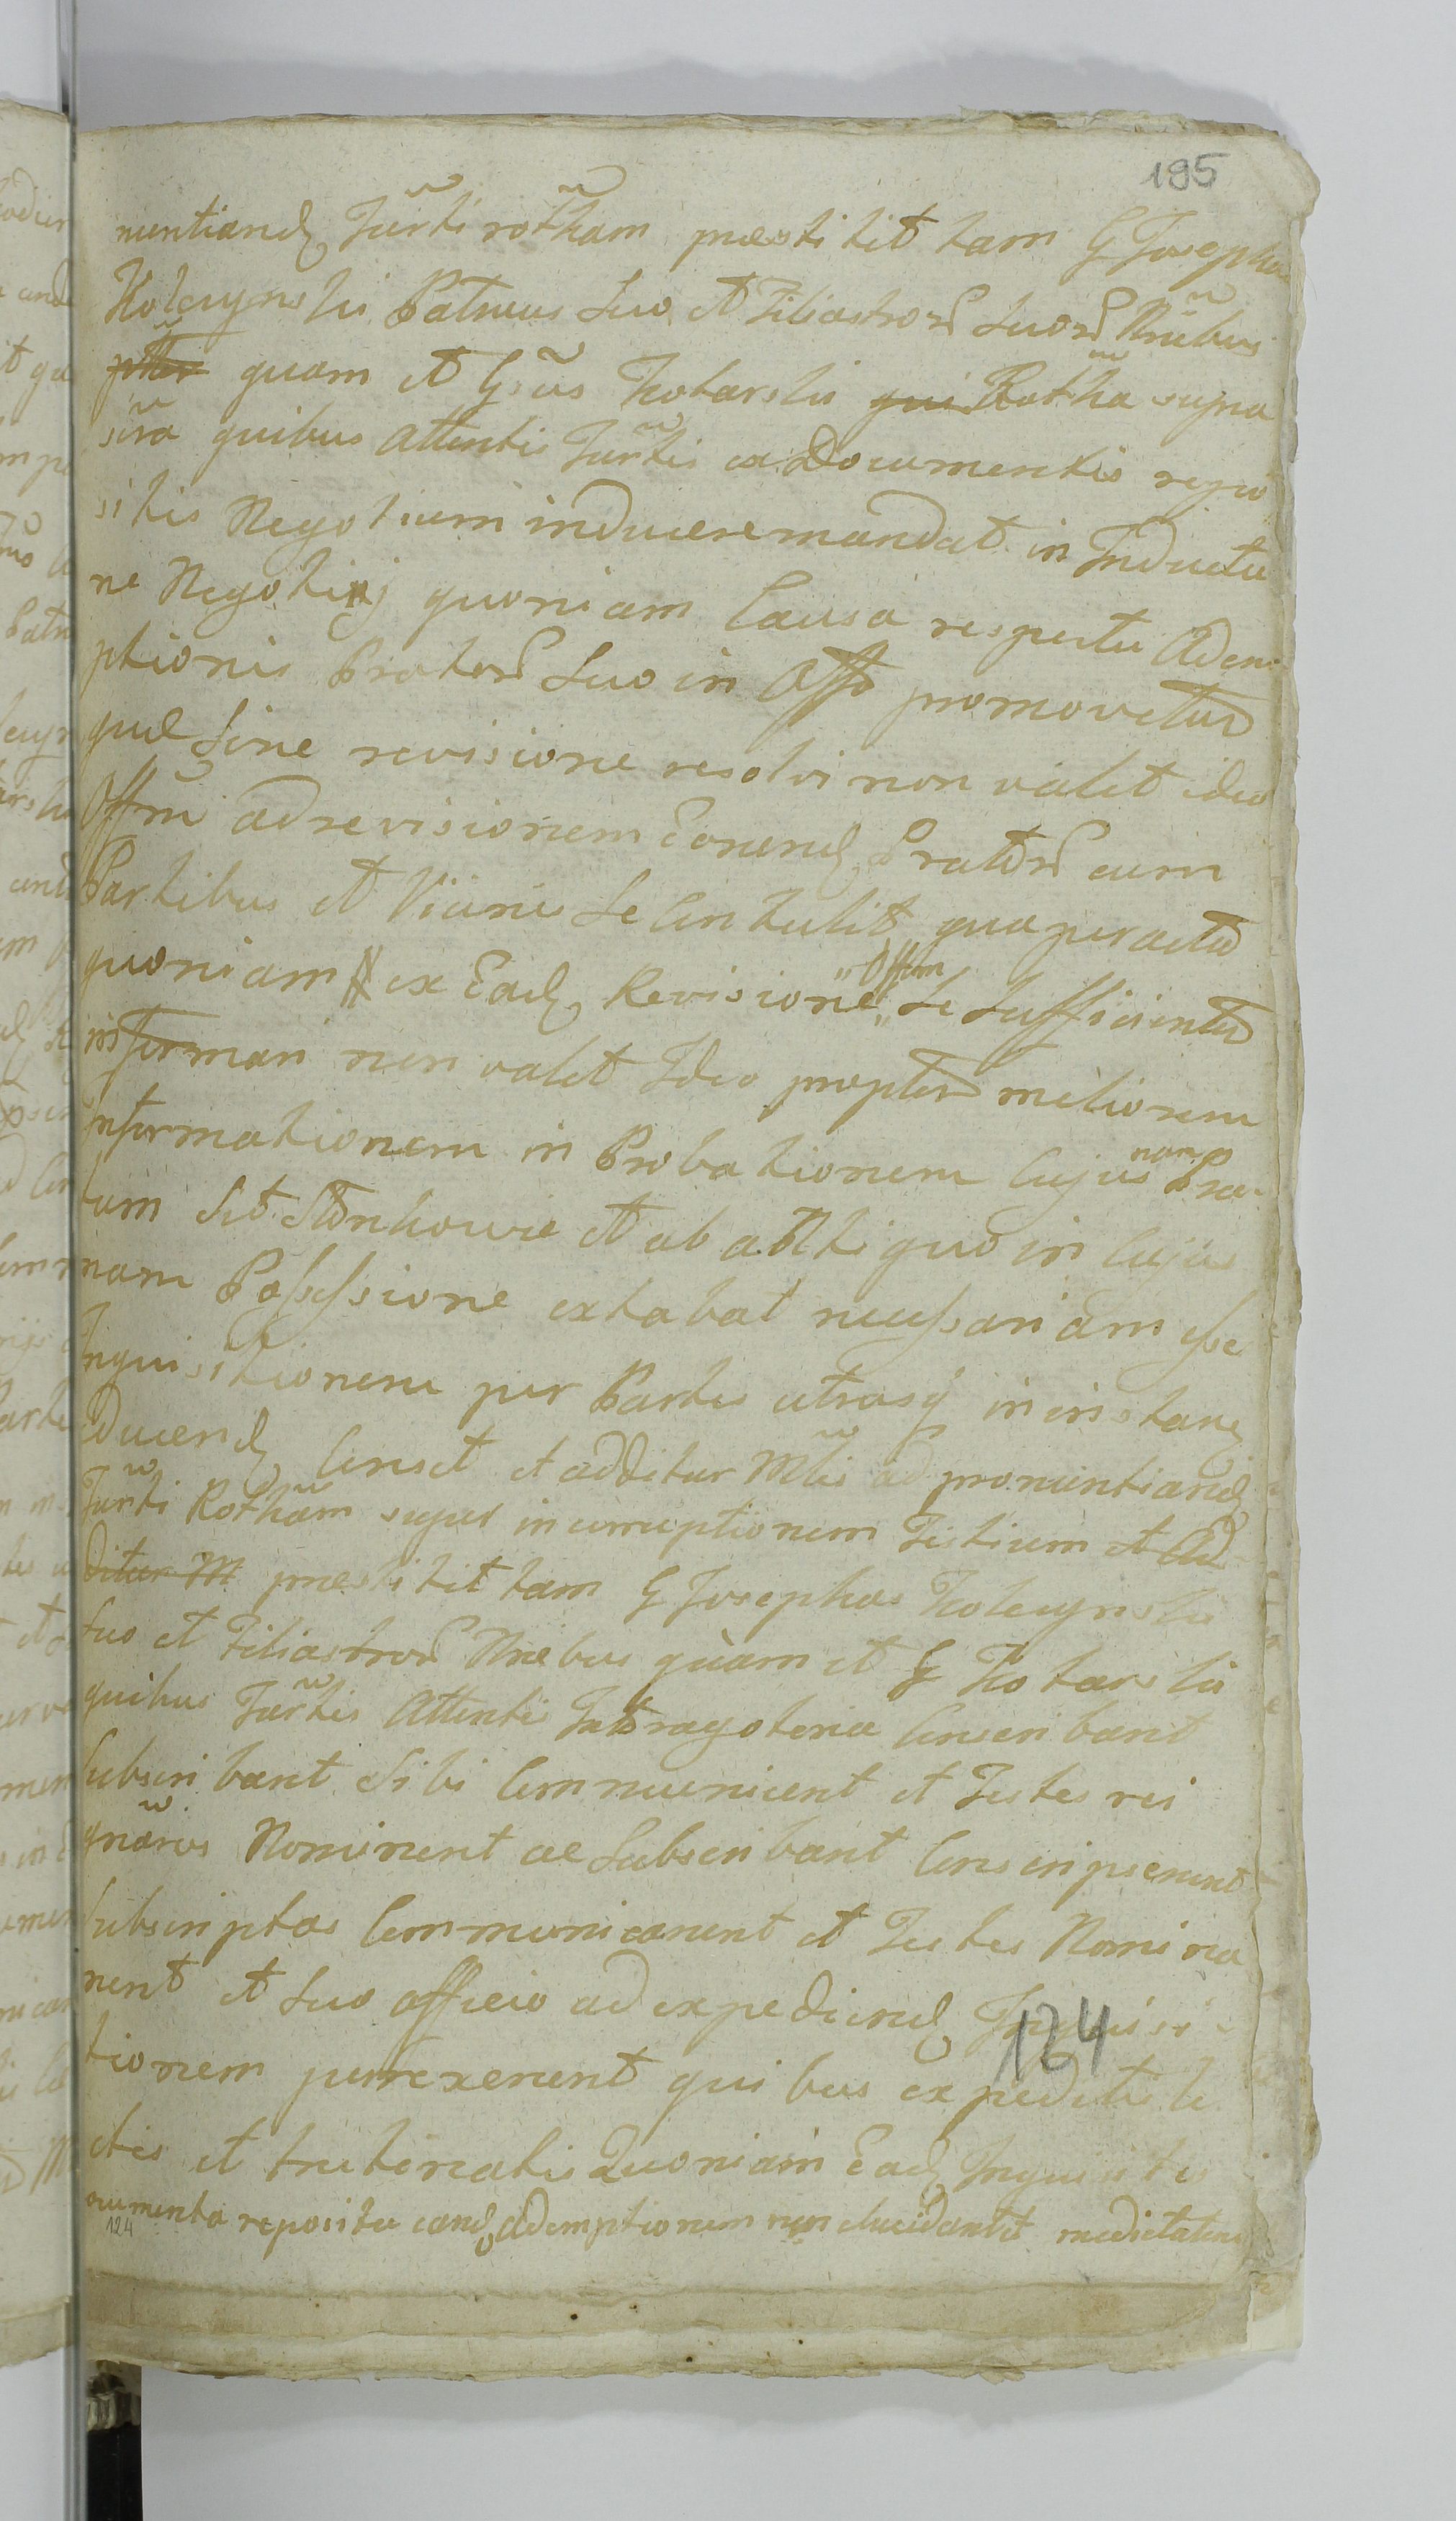 195
nuntiand Jur̃ti rotham præstitit tam G Josephus
Kolczynski Patruus Suo et Filiastror Suor Nñibus
quam et Gs̃us Kotarski qui Rotha supra
sc̃ra quibus attentis Jur̃tis ex Documentis repo
sitis Negotium inducere mandat in Inductio
ne Negotij quoniam Causa respectu Adem
ptionis Prator Suo in Offo promovetur
quæ Sine revisione resolvi non valet ideo
Offm̃ ad revisionem Eorund Prator cum
Partibus et Vicinis Se Contulit qua peracta
quoniam ex Ead Revisione „Offum„ Se Sufficienter
informari non valet Ideo propter meliorem
informationem in Probationem Cujus nam Pra
tum Sit Stonkowie et ab antiquo in Cujus
nam Possessione extabat necessariam esse
Inquisitionem per Partes utrasq in instan
ducend Censet et additur Mtis ad pronuntiand
Jur̃ti Rotham super incorruptionem Testium et Ad
ditur M præstitit tam G Josephus Kolczynski
Suo et Filiastror Nñebus quàm et G Kotarski
quibus Jur̃tis Attentis Interogatoria Conscribant
Subscribant Sibi Communicent et Testes rei
gnaros Nominent ac Subscribant Conscripserunt
Subscriptas Communicarunt et Testes Nomina
runt et Suo officio ad expediend Inquisi
tionem porrexerunt quibus expeditis le
ctis et trutinatis Quoniam Ead Inquisitio
cumenta reposita eand Ademptionem non elucidant et medietatem
124
124